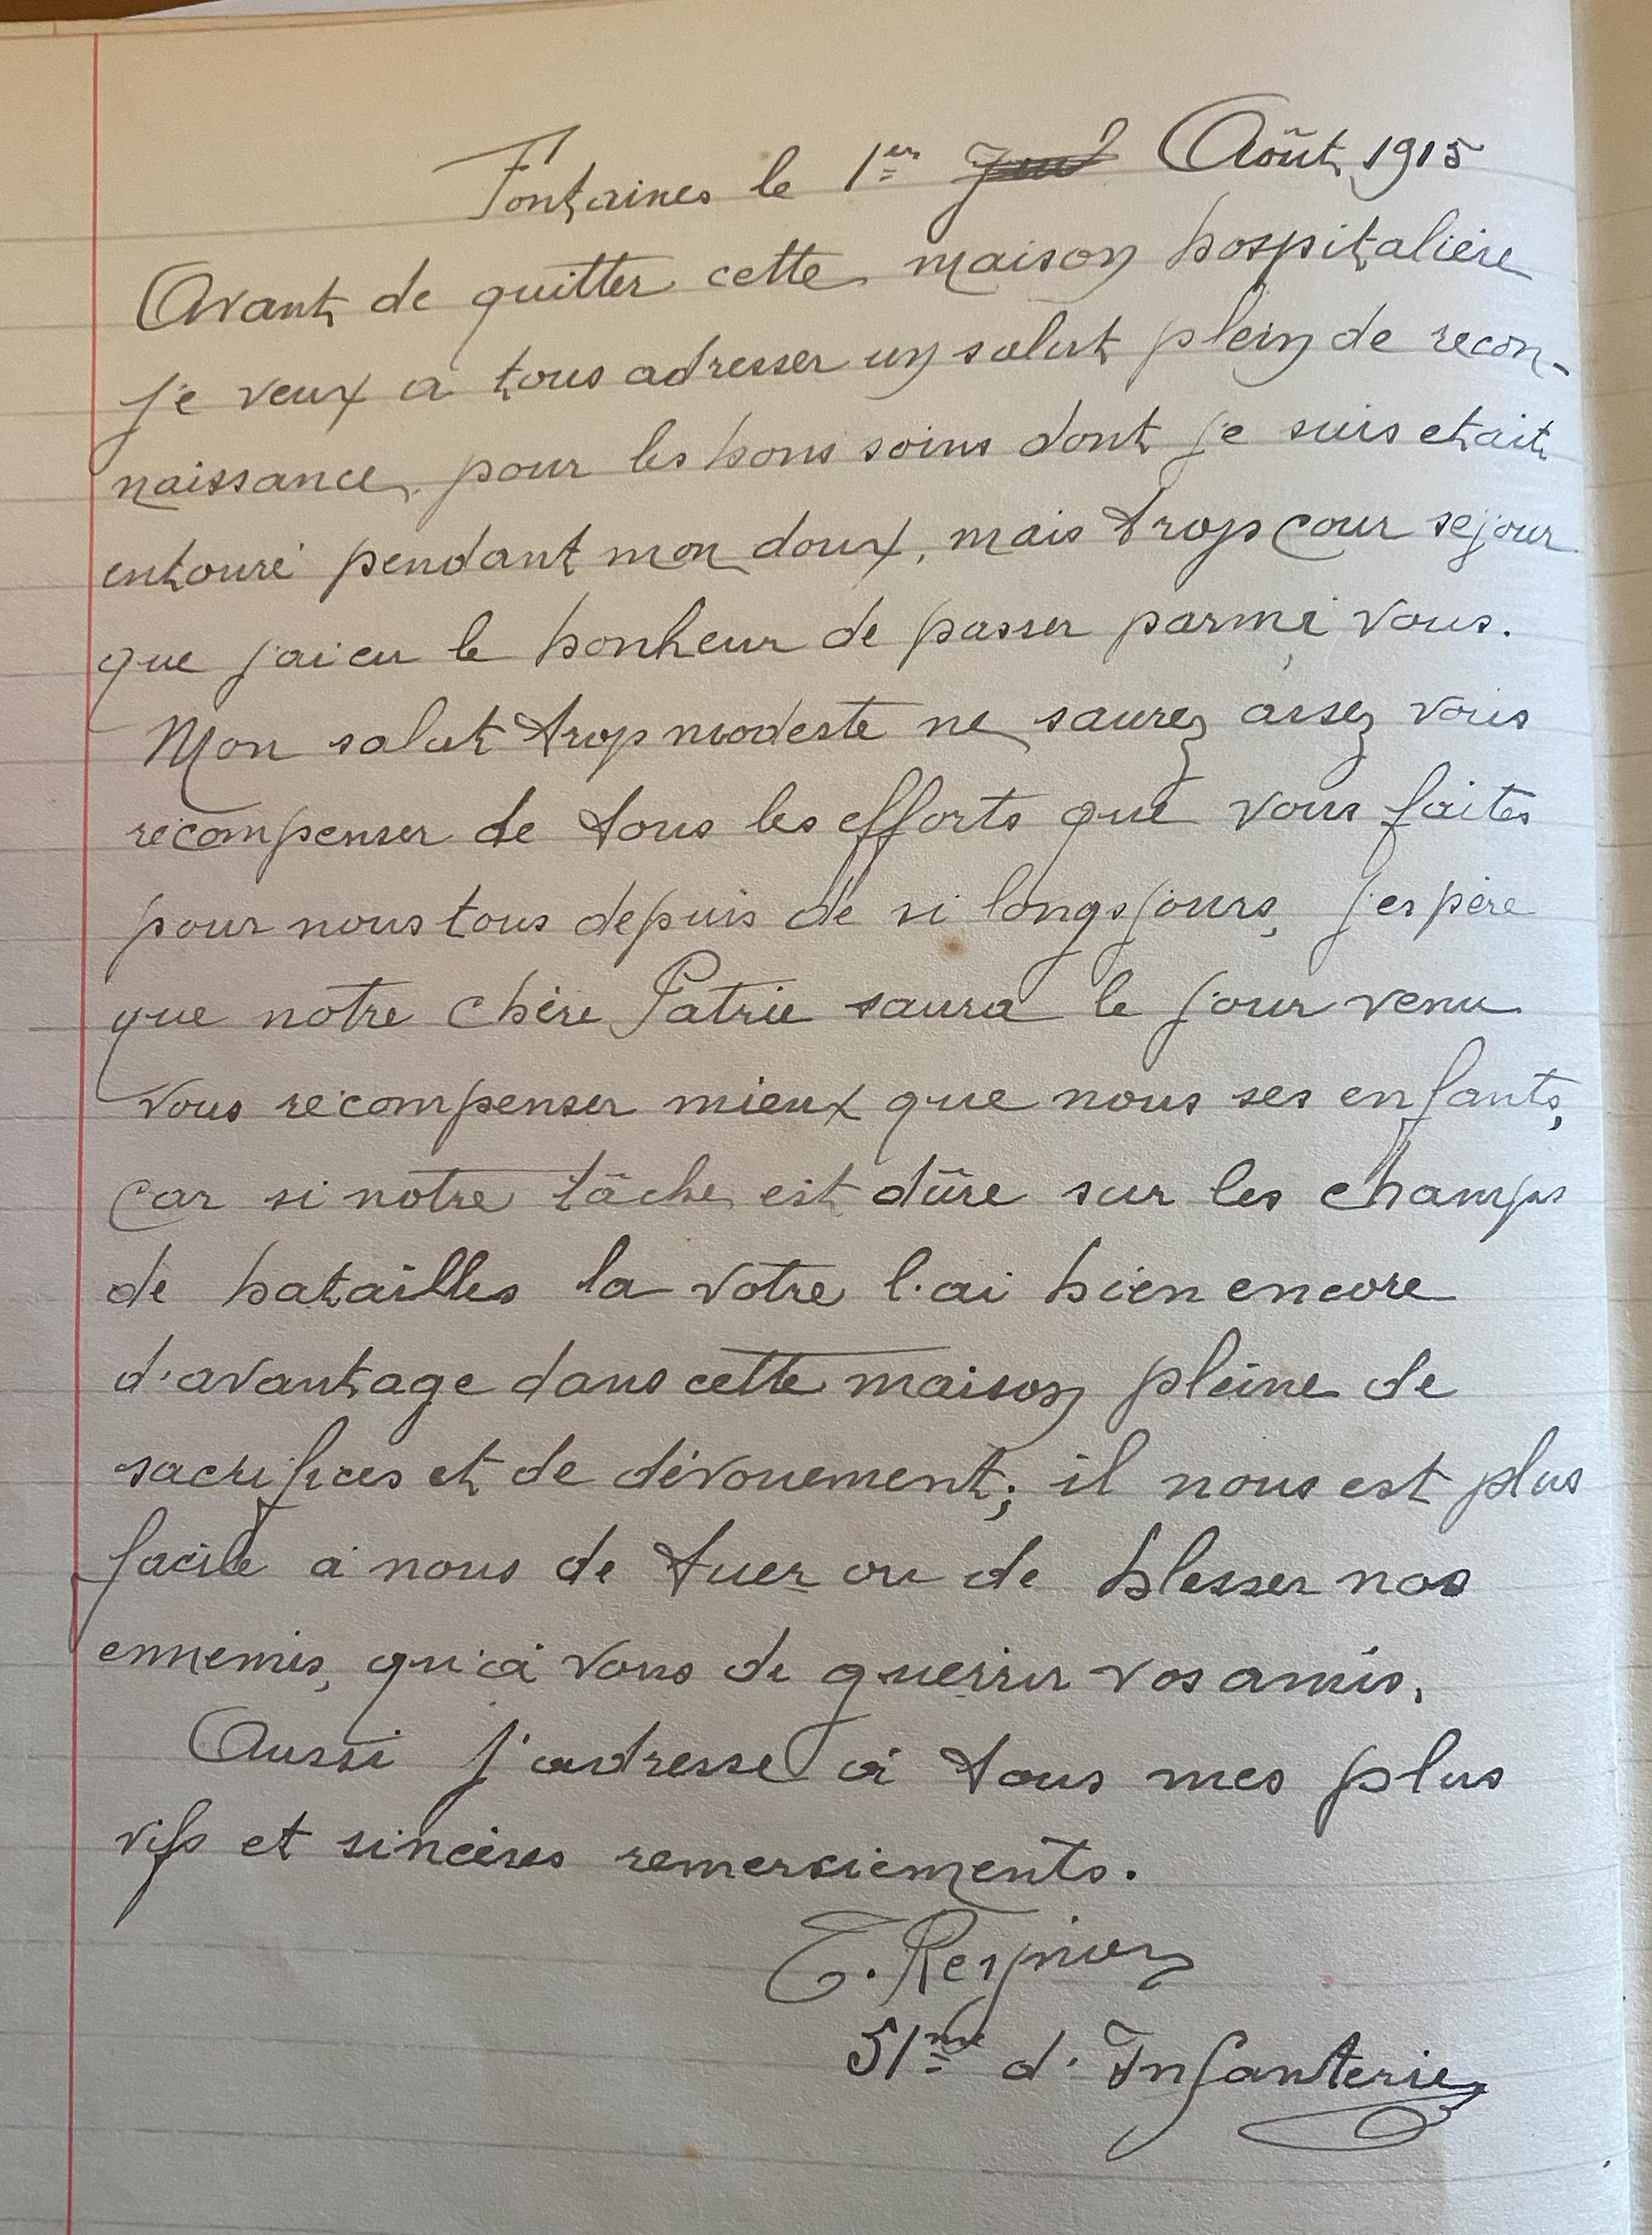 Fontaines le 1er Août 1915
Avant de quitter cette maison hospitalière
je veux a tous adresser un salut plein de recon-
naissance, pour les bons soins dont je suis etait
entouré pendant mon doux, mais trop cour sejour
que j'ai eu le bonheur de passer parmi vous.
Mon salut trop modeste ne saurez assez vous
récompenser de tous les efforts que vous faites
pour nous tous depuis de si longs jours, j'espère
que notre chère Patrie saura le jour venu
vous récompenser mieux que nous ses enfants,
car si notre tâche est dûre sur les champs
de batailles la votre l'ai bien encore
d'avantage dans cette maison pleine de
sacrifices et de dévouement; il nous est plus
facile à nous de tuer ou de blesser nos
ennemis, qu'à vous de guerrir vos amis.
Aussi j'adresse à tous mes plus
vifs et sincères remerciements.
51me d'Infanterie